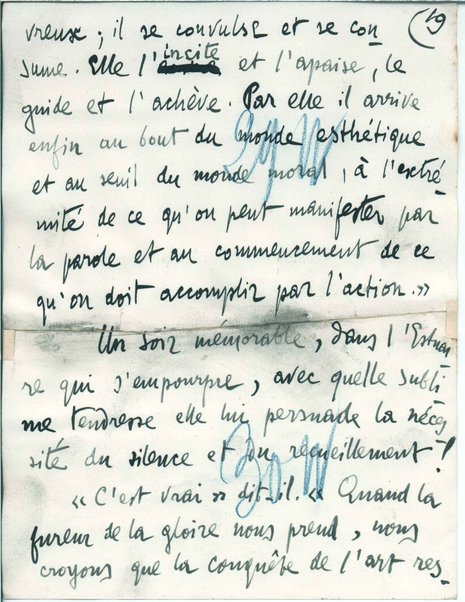 19
vreuse ; il se convulse et se con
sume. Elle l'incite et l'apaise, le
guide et l'achève. Par elle il arrive
enfin au bout du monde esthétique
et au seuil du monde moral, à l'extré
mité de ce qu'on peut manifester par
la parole et au commencement de ce
qu'on doit accomplir par l'action. »
Un soir mémorable, dans l'Estuai
re qui s'empourpre, avec quelle subli
me tendresse elle lui persuade la néces
sité du silence et du recueillement !
« C'est vrai » dit-il. « Quand la
fureur de la gloire nous prend, nous
croyons que la conquête de l'art res